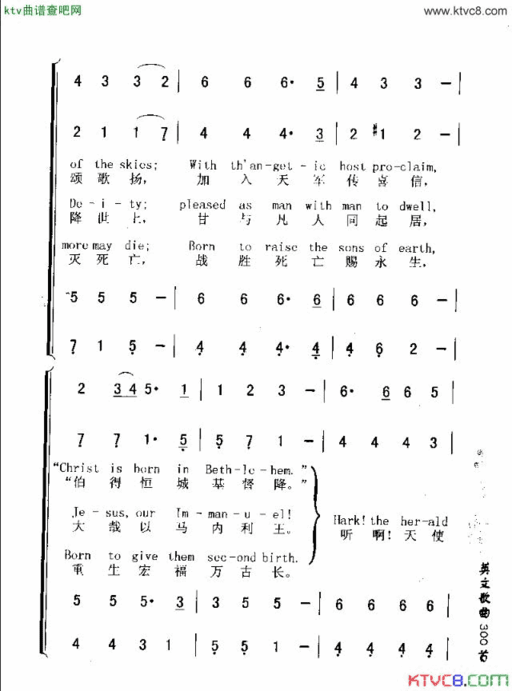 ktv曲谱查吧网
www.ktvc8.com
4 3 3 2 | 6 6 6· 5 | 4 3 3 - |
2 1 1 7 | 4 4 4· 3 | 2 #1 2 - |
of the skies; With th'an-get-ic host pro-claim,
颂歌扬, 加入天军传喜信,
De-i-ty; pleased as man with man to dwell,
降世上, 甘与凡人同起居,
more may die; Born to raise the sons of earth,
灭死亡, 战胜死亡赐永生,
5 5 5 - | 6 6 6· 6 | 6 6 6 - |
7 1 5 - | 4 4 4· 4 | 4 6 2 - |
2 3 4 5· 1 | 1 2 3 - | 6· 6 6 5 |
7 7 1· 5 | 5 7 1 - | 4 4 4 3 |
“Christ is born in Beth-le-hem.”
“伯得恒城基督降。”
Je-sus, our Im-man-u-el!
大哉以马内利王。
Hark! the her-ald
听啊!天使
Born to give them sec-ond birth.
重生宏福万古长。
5 5 5· 3 | 3 5 5 - | 6 6 6 6 |
4 4 3 1 | 5 5 1 - | 4 4 4 4 |
英文歌曲300首
KTVC8.com